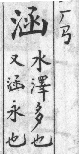 㔾
涵
水澤多也
又涵泳也